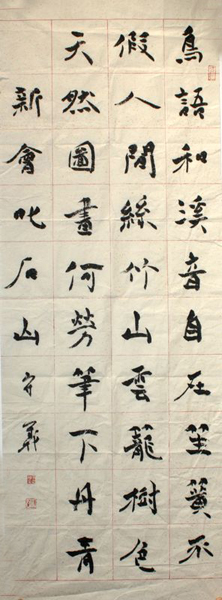 鳥語和溪音自在笙簧不
假人間絲竹山雲籠樹色
天然圖畫何勞筆下丹青
新會叱石山守義